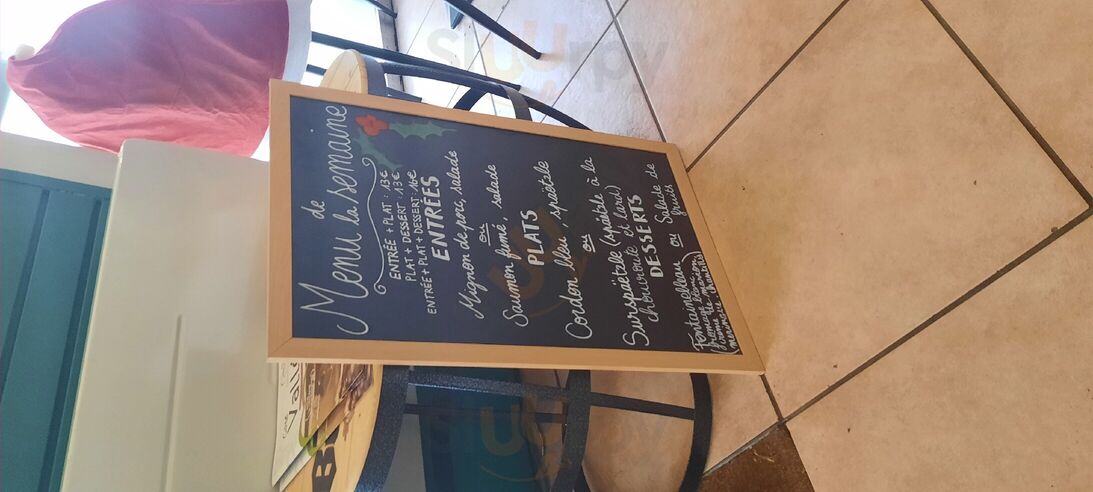 Menu de
la semaine
ENTRÉE + PLAT : 13€
PLAT + DESSERT : 13€
ENTRÉE + PLAT + DESSERT : 16€
ENTRÉES
Mignon de porc, salade
ou
Saumon fumé, salade
PLATS
Cordon bleu, spaëtzle
ou
Surspaëtzle (spaëtzle à la
chouiroute et lard)
DESSERTS
Fontainebleau ou Salade de
fruits
(fromage blanc,